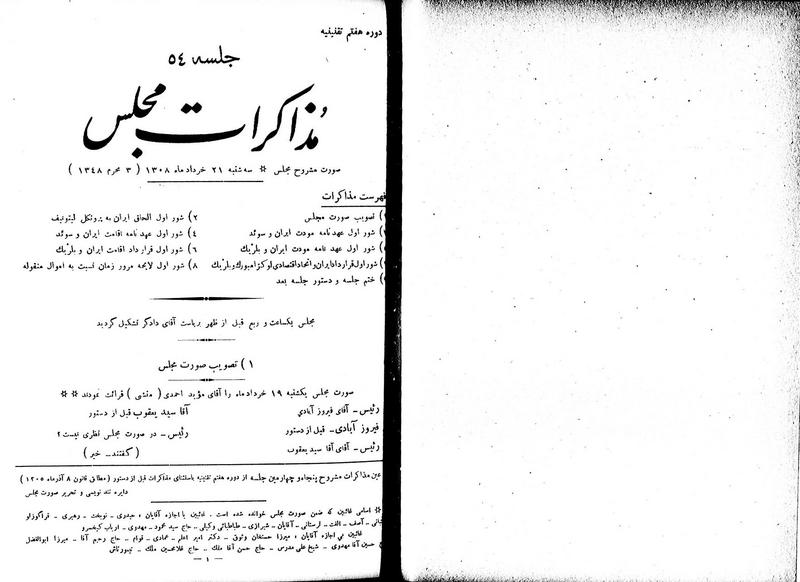 دوره هفتم تقنینیه
جلسه ٥٤
مذاکرات مجلس
صورت مشروح مجلس ☼ سه شنبه ٢١ خرداد ماه ١٣٠٨ ( ٣ محرم ١٣٤٨ )
فهرست مذاکرات
) تصویب صورت مجلس
٢) شور اول الحاق ایران به پروتکل لیتونیف
) شور اول عهدنامه مودت ایران و سوئد
٤) شور اول عهدنامه اقامت ایران و سوئد
) شور اول عهد نامه مودت ایران و بلژیک
٦) شور اول قرار داد اقامت ایران و بلژیک
) شور اول قرارداد ایران و اتحاد اقتصادی لوکزامبورك و بلژیك
٨) شور اول لایحه مرور زمان نسبت به اموال منقوله
) ختم جلسه و دستور جلسه بعد
مجلس یکساعت و ربع قبل از ظهر بریاست آقای دادگر تشکیل گردید
١ ) تصویب صورت مجلس
صورت مجلس یکشنبه ١٩ خرداد ماه را آقای مؤید احمدی ( منشی ) قرائت نمودند ☼☼
رئیس ـ آقای فیروز آبادی
فیروز آبادی ـ قبل از دستور
رئیس ـ آقای آقا سید یعقوب
آقا سید یعقوب قبل از دستور
رئیس ـ در صورت مجلس نظری نیست؟
( گفتند ـ خیر )
عین مذاکرات مشروح پنجاه و چهارمین جلسه از دوره هفتم تقنینیه باستثنای مذاکرات قبل از دستور ( مطابق قانون ٨ آذرماه ١٣٠٥ )
دایره تند نویسی و تحریر صورت مجلس
☼ اسامی غائبین که ضمن صورت مجلس خوانده شده است . غائبین با اجازه آقایان : حیدری ـ نوبخت ـ رهبری ـ قراگوزلو
ـ آصف ـ الفت ـ لرستانی ـ آقایان ـ شیرازی ـ طباطبائی وکیلی ـ حاج سید محمود ـ مهدوی ـ ارباب کیخسرو
غائبین بی اجازه آقایان : میرزا حسنخان وثوق ـ دکتر امیر اعلم ـ عمادی ـ قوام ـ حاج رحیم آقا ـ میرزا ابوالفضل
حسین آقا مهدوی ـ شیخ علی مدرس ـ حاج حسن آقا ملك ـ حاج غلامحسین ملك ـ تیمورتاش
ـ ١ ـ